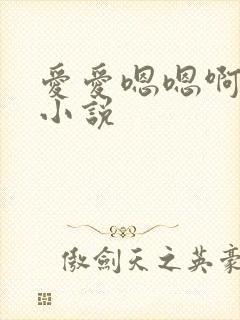 愛愛嗯嗯啊
小說
傲劍天之英豪